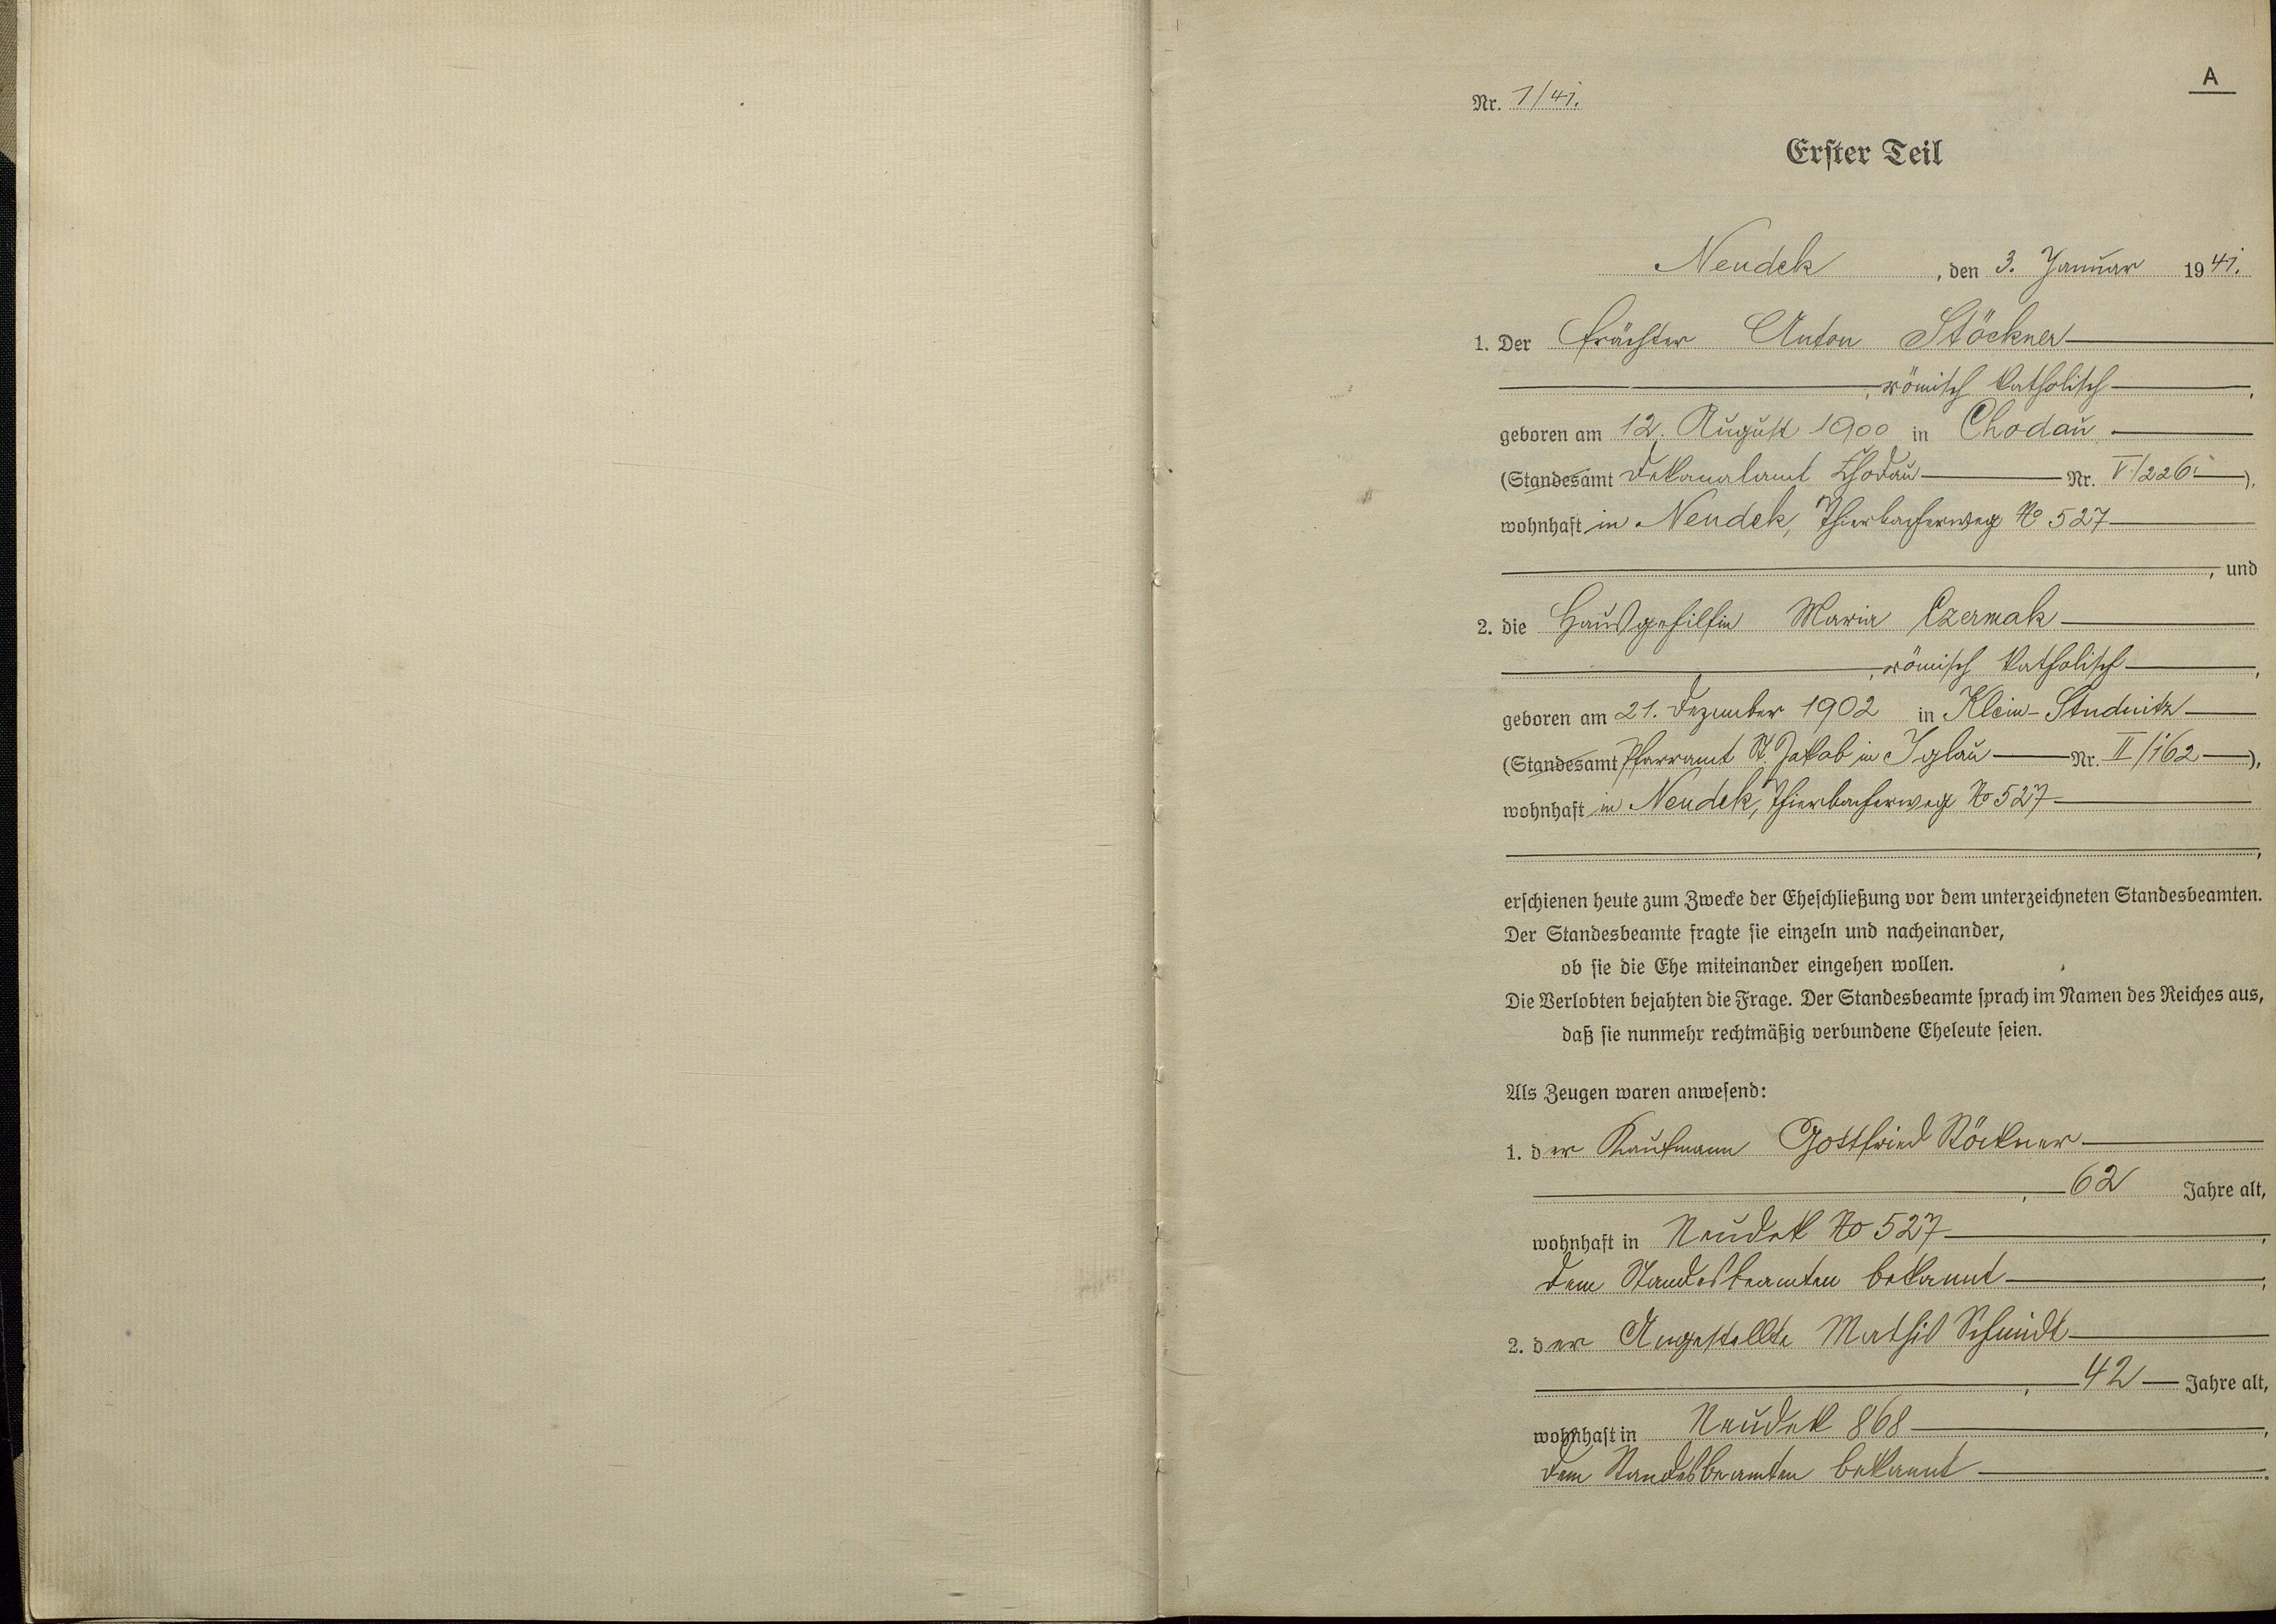 A
Nr. 1/41.
Erster Teil
Neudek, den 3. Januar 1941.
1. Der Frächter Anton Stöckner
, römisch katholisch,
geboren am 12. August 1900 in Chodau
(Standesamt Dekanalamt Chodau Nr. V/226),
wohnhaft in Neudek, Thierbacherweg No 527
, und
2. die Hausgehilfin Maria Czermak
, römisch katholisch,
geboren am 21. Dezember 1902 in Klein-Studnitz
(Standesamt Pfarramt St. Jakob in Iglau Nr. II/162),
wohnhaft in Neudek, Thierbacherweg No 527
,
erschienen heute zum Zwecke der Eheschließung vor dem unterzeichneten Standesbeamten.
Der Standesbeamte fragte sie einzeln und nacheinander,
ob sie die Ehe miteinander eingehen wollen.
Die Verlobten bejahten die Frage. Der Standesbeamte sprach im Namen des Reiches aus,
daß sie nunmehr rechtmäßig verbundene Eheleute seien.
Als Zeugen waren anwesend:
1. der Kaufmann Gottfried Stöckner
, 62 Jahre alt,
wohnhaft in Neudek No 527,
dem Standesbeamten bekannt,
2. der Angestellte Schmidt
, 42 Jahre alt,
wohnhaft in Neudek 868,
dem Standesbeamten bekannt.